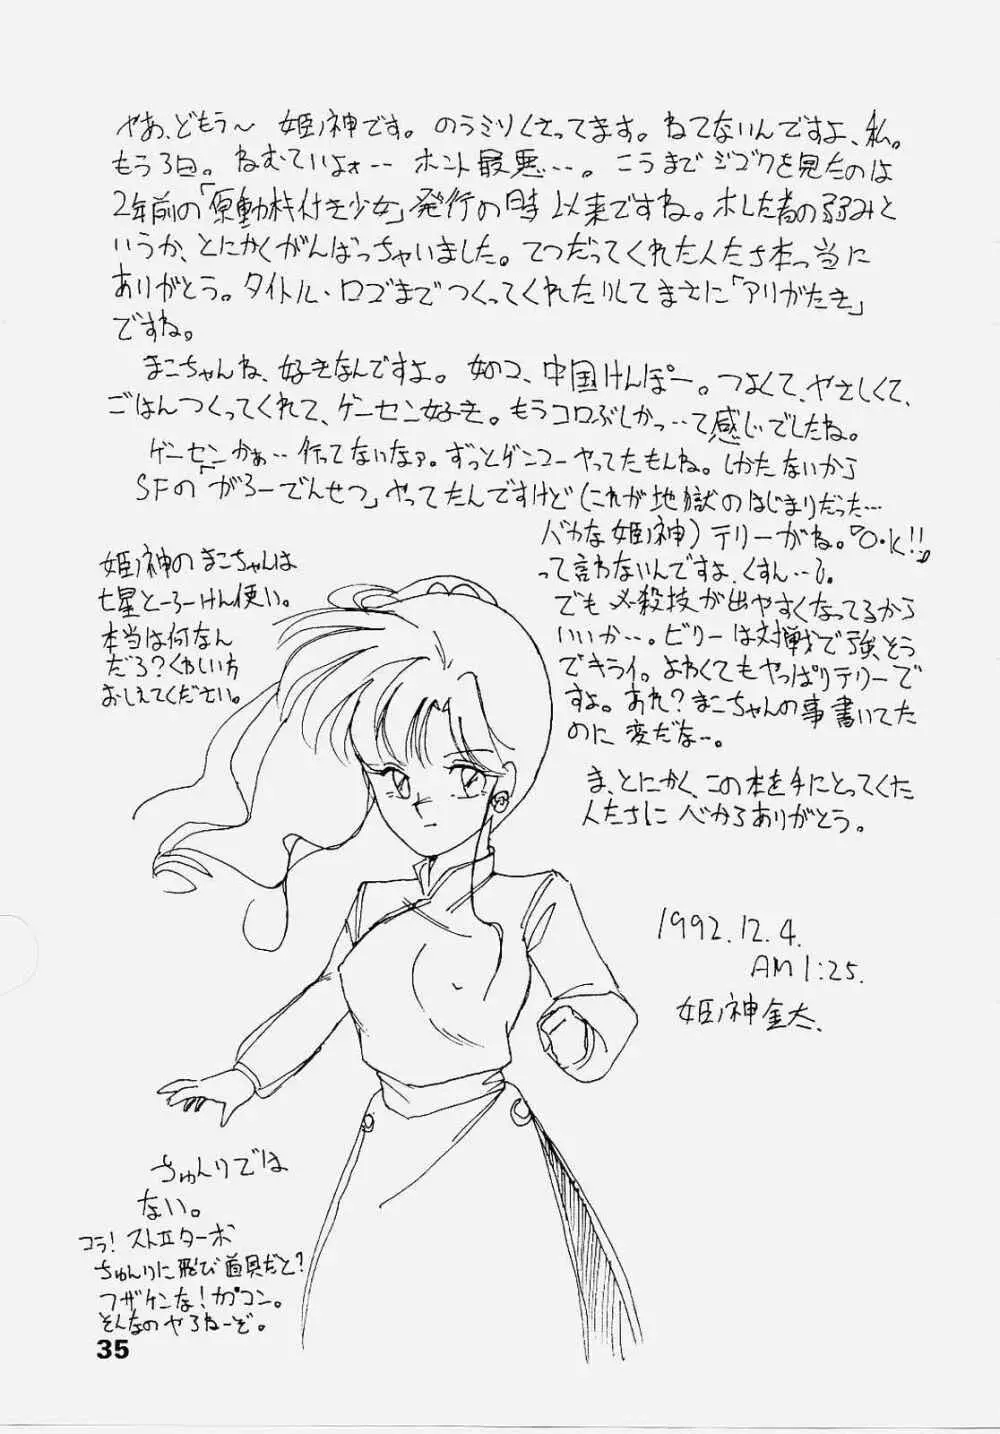 やあ、どもう〜 姫ノ神です。のうミソくさってます。ねてないんですよ、私。
もう3日。ねむていよォ‥‥ ホント最悪…。こうまでジゴクを見たのは
2年前の「原動機付き少女」発行の時以来ですね。ホレた者の弱みと
いうか、とにかくがんばっちゃいました。てつだってくれた人たち本っ当に
ありがとう。タイトル・ロゴまでつくってくれたりしてまさに「アリがたき」
ですね。
まこちゃんね、好きなんですよ。女のコ、中国けんぽー。つよくて、やさしくて、
ごはんつくってくれて、ゲーセン好き。もうコロぶしかっ‥って感じでしたね。
ゲーセンかぁ‥‥行ってないなァ。ずっとゲンコーやってたもんね。しかたないから
SFの「がろーでんせつ」やってたんですけど(これが地獄のはじまりだった…
バカな姫ノ神)テリーがね。『O・K!!』
って言わないんですよ、くすん…。
でも必殺技が出やすくなってるから
いいか…。ビリーは対戦で強そう
でキライ。よわくてもやっぱりテリーで
すよ。あれ?まこちゃんの事書いてた
のに変だな〜。
ま、とにかく、この本を手にとってくた
人たちに心からありがとう。
1992.12.4.
AM1:25.
姫ノ神金太.
姫ノ神のまこちゃんは
七星とーろーけん使い。
本当は何なん
だろ?くわしい方
おしえてください。
ちゅんりでは
ない。
コラ!ストIIターボ
ちゅんりに飛び道具だと?
フザケンな!カプコン。
そんなのやろねーぞ。
35